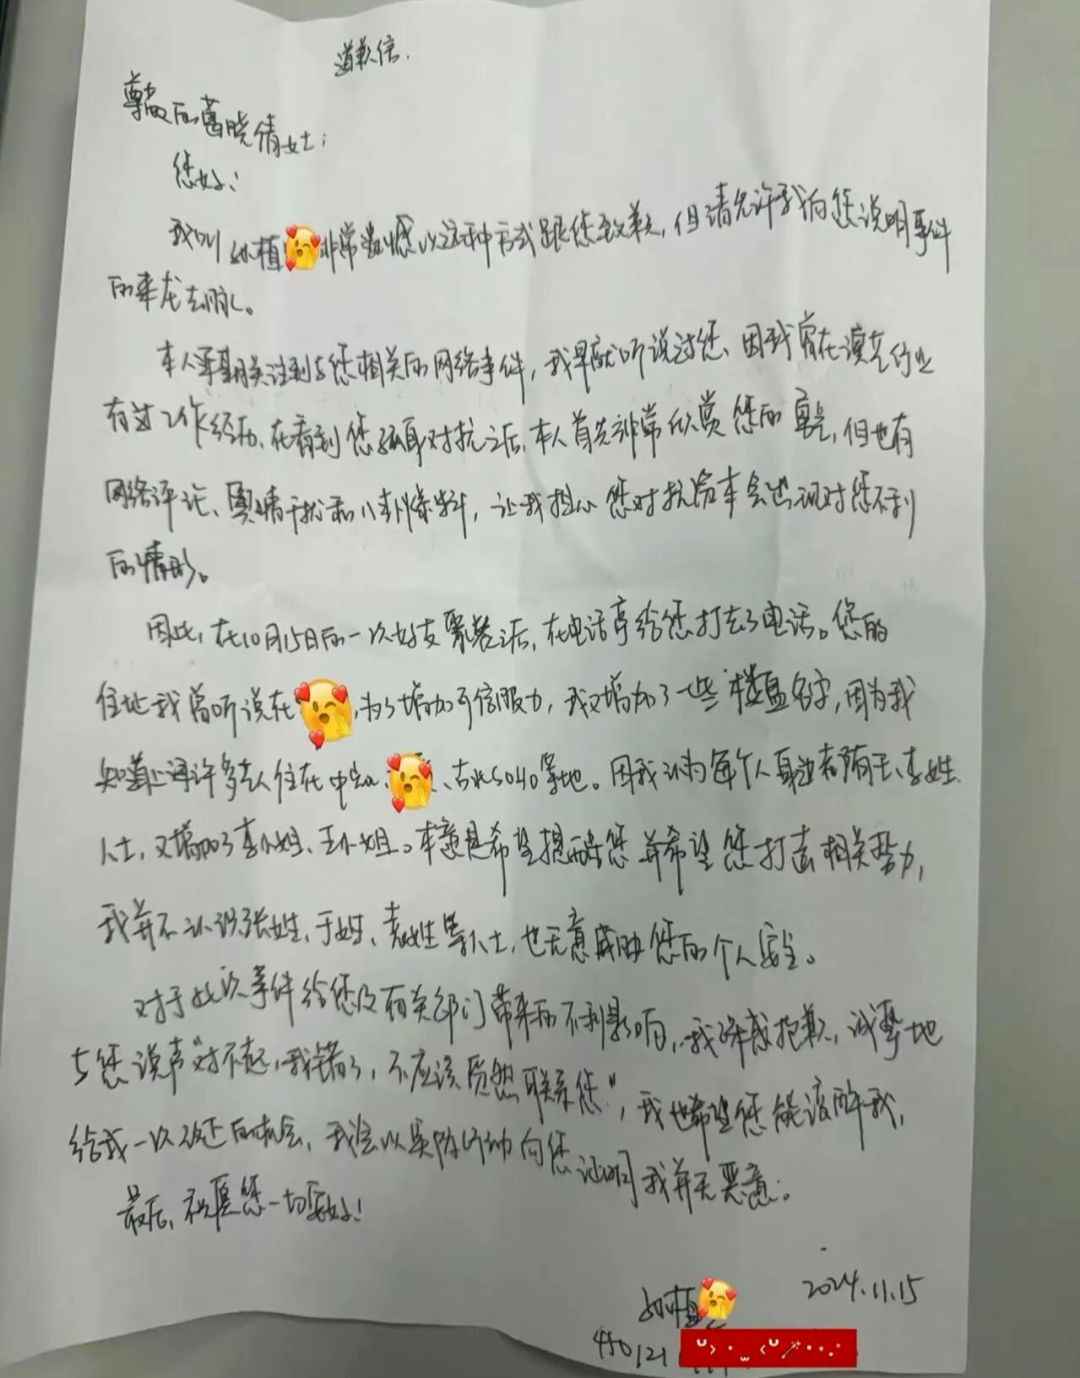 道歉信.
尊敬的葛晓倩女士:
您好!
我叫 植 非常遗憾以这种方式跟您致歉,但请允许我向您说明事件
的来龙去脉。
本人早期关注到与您相关的网络事件,我早就听说过您、因我曾在演艺行业
有过工作经历、在看到您孤身对抗之后,本人首先非常欣赏您的 ,但也有
网络评论、舆情干扰和八卦爆料,让我担心您对抗资本会出现对您不利
的情形。
因此,在10月15日的一次好友聚餐之后,在电话亭给您打去了电话。您的
住址我曾听说在 ,为了增加可信服力,我又增加了一些楼盘名字,因为我
知道上海许多艺人住在中 、 、古北5040等地。因我认为每个人身边都有王、李姓
人士,又增加了李小姐、王小姐。本意是希望提醒您并希望您打击相关势力,
我并不认识张姓、于姓、袁姓等人士,也无意威胁您的个人安全。
对于此次事件给您及有关部门带来的不利影响,我深感抱歉,诚挚地
与您说声"对不起,我错了,不应该贸然联系您",我也希望您能谅解我,
给我一次改正的机会,我会以实际行动向您证明我并无恶意。
最后,祝愿您一切安好!
植
2024.11.15
450121